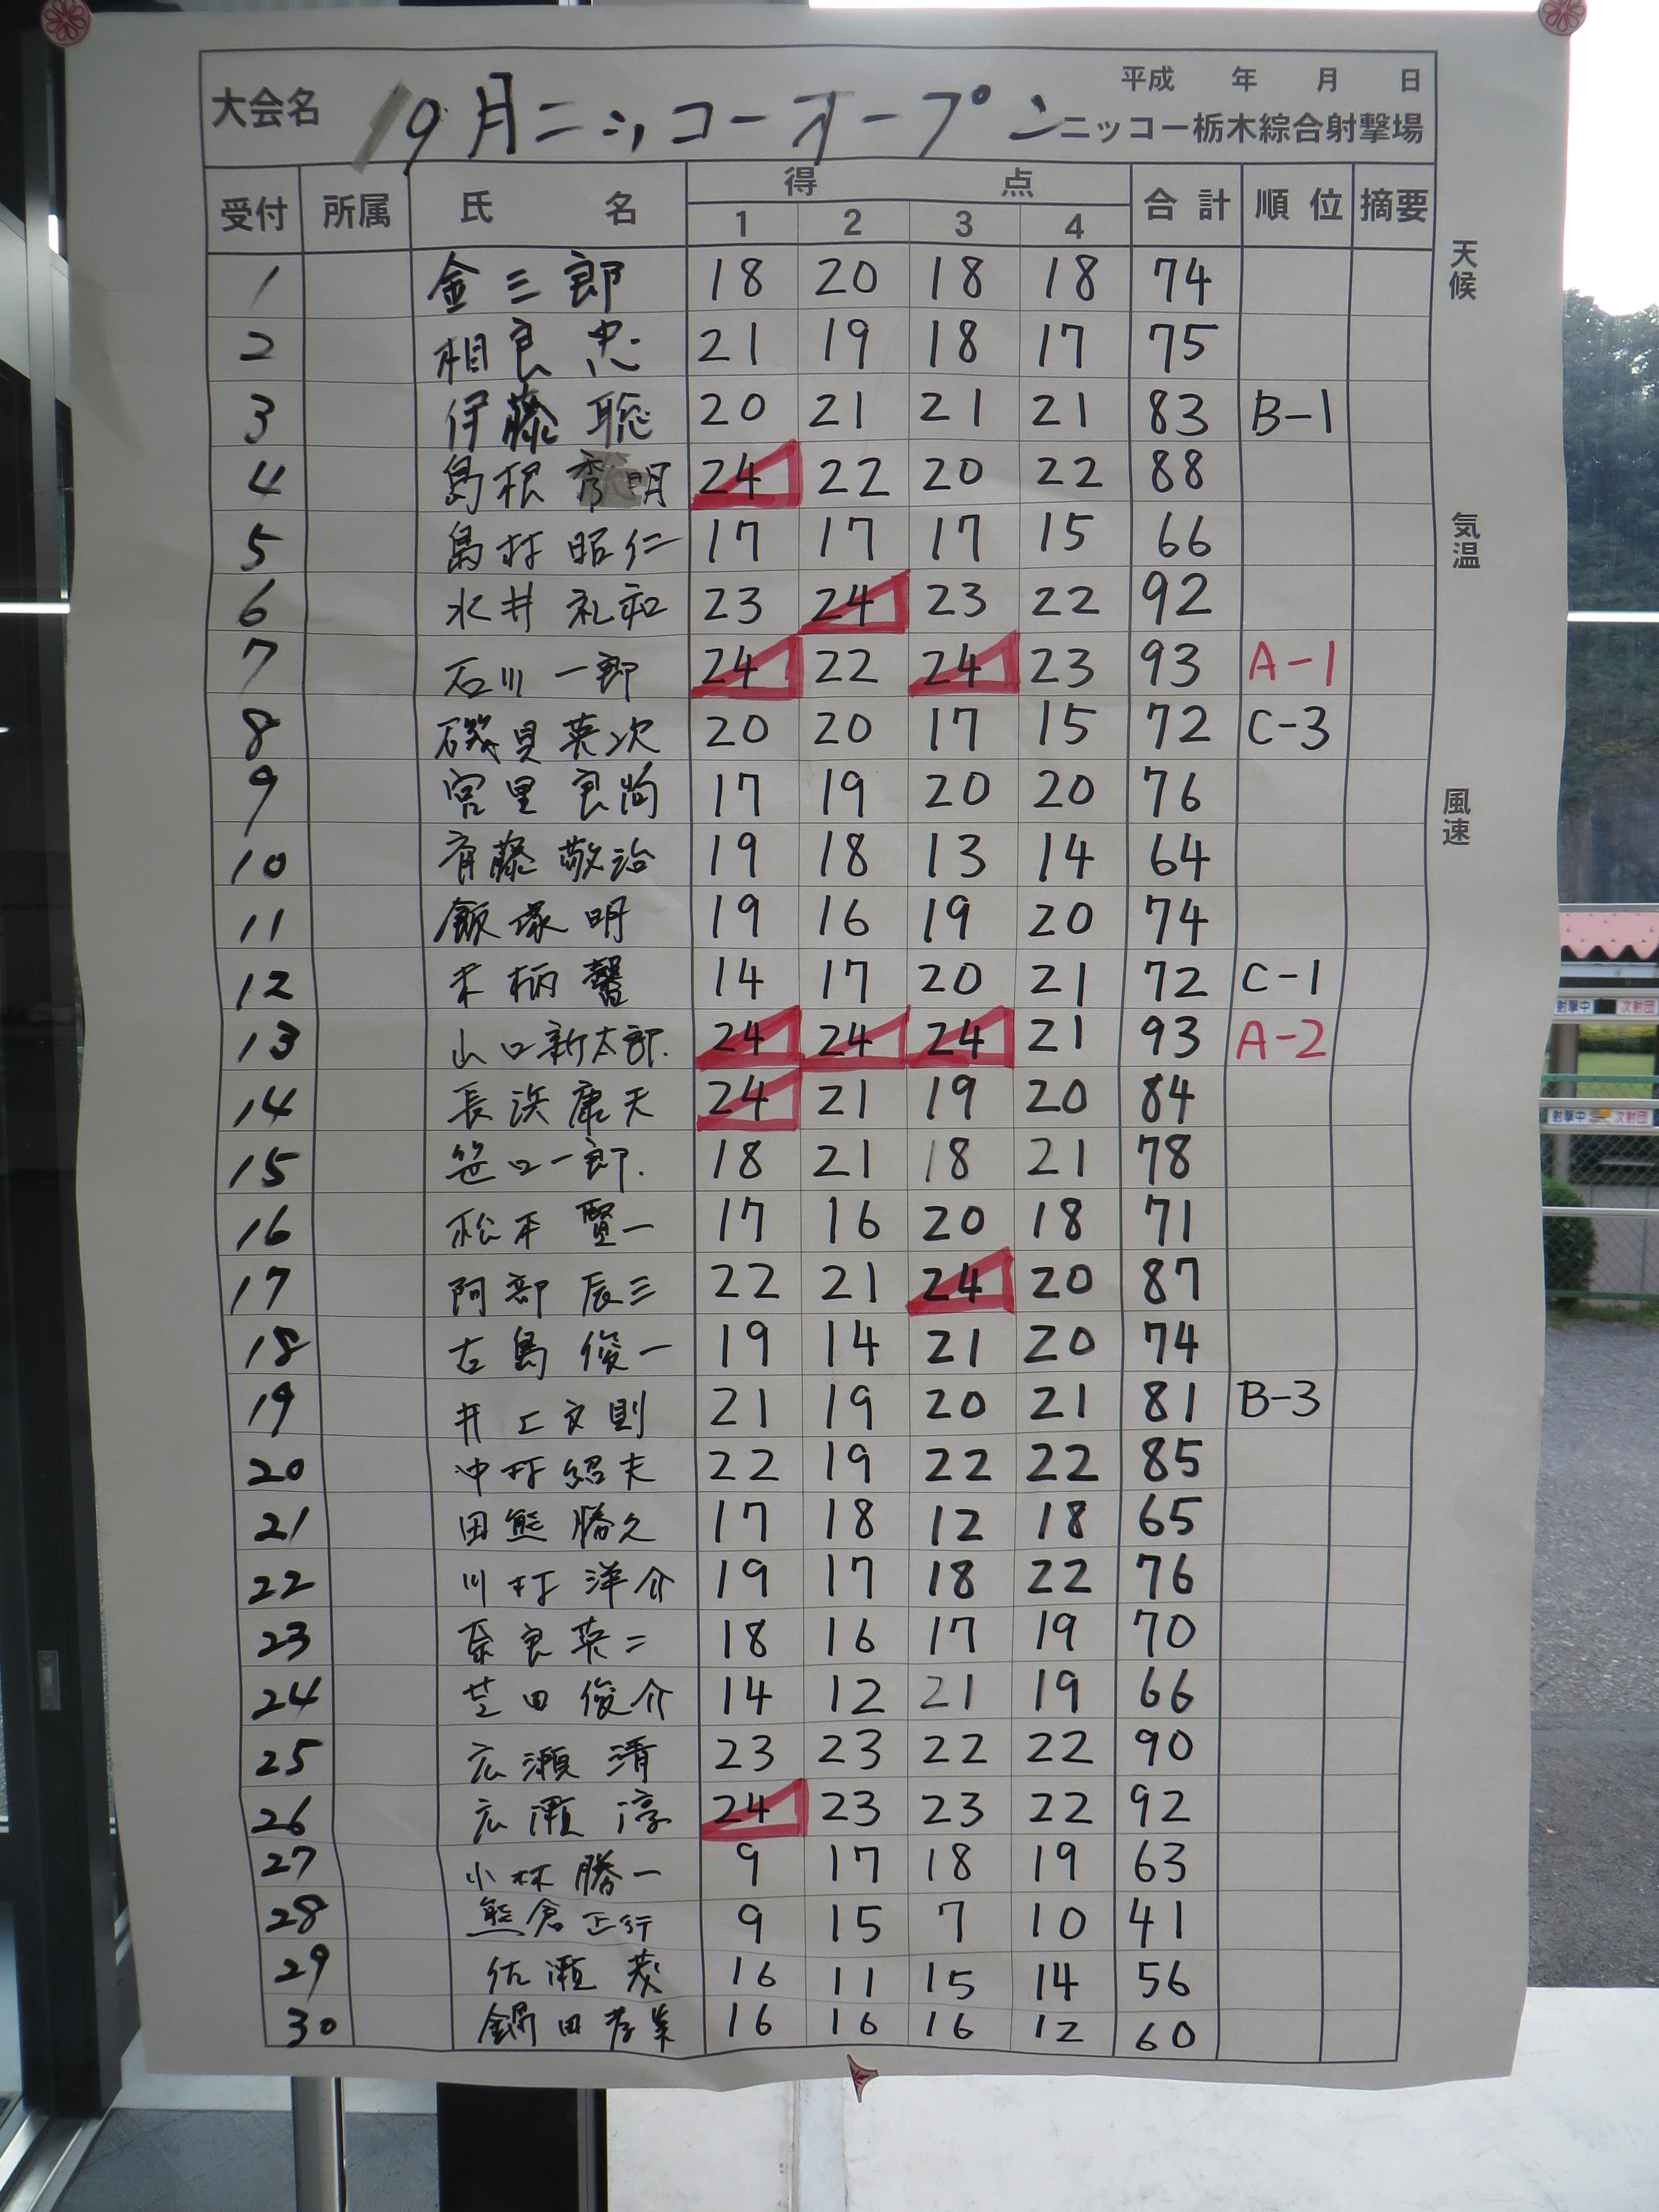 平成 年 月 日
大会名 9月ニッコーオープン ニッコー栃木綜合射撃場
受付 所属 氏 名 得 点 合計 順位 摘要
1 2 3 4
1 金三郎 18 20 18 18 74
2 相良 忠 21 19 18 17 75
3 伊藤 聡 20 21 21 21 83 B-1
4 島根 秀明 24 22 20 22 88
5 島村 昭仁 17 17 17 15 66
6 水井 礼和 23 24 23 22 92
7 石川 一郎 24 22 24 23 93 A-1
8 磯貝英次 20 20 17 15 72 C-3
9 宮里 良尚 17 19 20 20 76
10 斉藤 敬治 19 18 13 14 64
11 飯塚 明 19 16 19 20 74
12 馨 14 17 20 21 72 C-1
13 山口新太郎. 24 24 24 21 93 A-2
14 長浜 康夫 24 21 19 20 84
15 笹口一郎. 18 21 18 21 78
16 松本 賢一 17 16 20 18 71
17 阿部 辰三 22 21 24 20 87
18 古島 俊一 19 14 21 20 74
19 井上文則 21 19 20 21 81 B-3
20 中村紹夫 22 19 22 22 85
21 田熊 勝久 17 18 12 18 65
22 川村 洋介 19 17 18 22 76
23 奈良英二 18 16 17 19 70
24 芝田 俊介 14 12 21 19 66
25 広瀬 清 23 23 22 22 90
26 広瀬 淳 24 23 23 22 92
27 小林 勝一 9 17 18 19 63
28 熊倉正行 9 15 7 10 41
29 佐瀬 茂 16 11 15 14 56
30 鍋田 16 16 16 12 60
天候
気温
風速
射撃中 次射団
射撃中 次射団